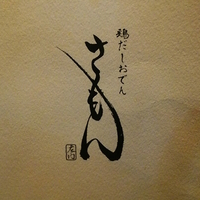 鶏だしおでん
さもん